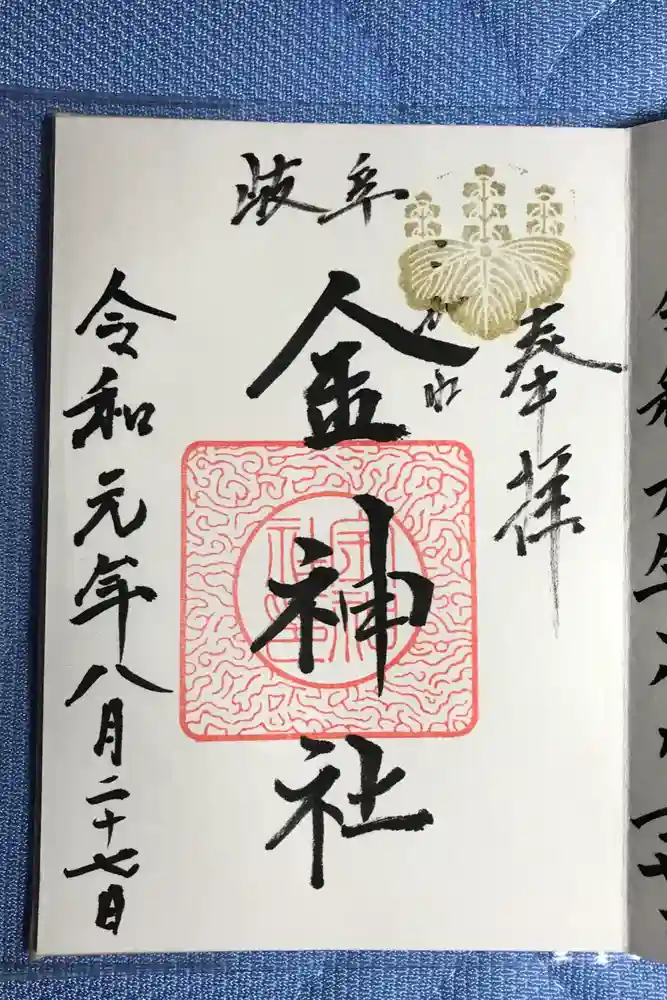 奉拝
岐阜
金神社
令和元年八月二十七日